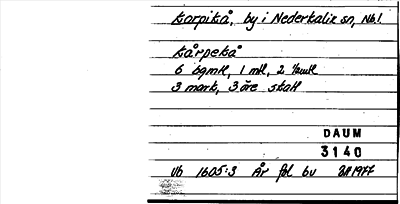 Korpikå, by i Nederkalix sn, Nb.
Kårpekå
6 bgmtl, 1 mtl, 2 ½mtl
3 mark, 3 öre skatt
DAUM
3140
Vb 1605:3 År fol bv 1977